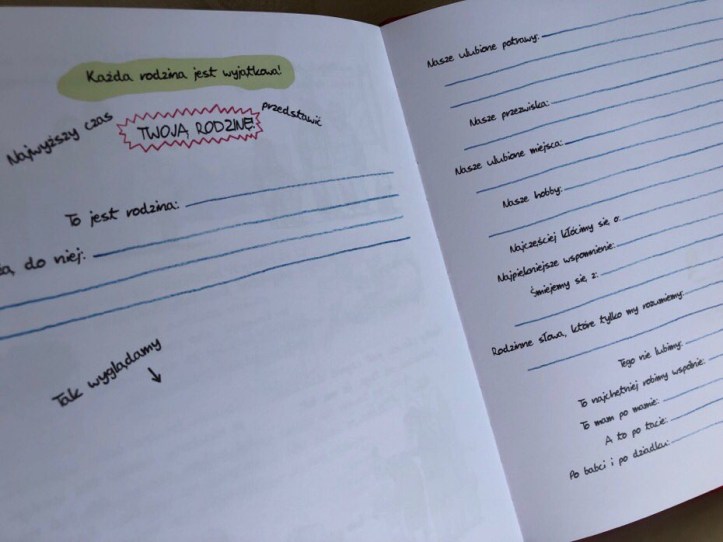 Każda rodzina jest wyjątkowa!
Najwyższy czas przedstawić
TWOJĄ RODZINĘ!
To jest rodzina:
do niej:
Tak wyglądamy
Nasze ulubione potrawy:
Nasze przezwiska:
Nasze ulubione miejsca:
Nasze hobby:
Najczęściej kłócimy się o:
Najpiękniejsze wspomnienie:
Śmiejemy się z:
Rodzinne słowa, które tylko my rozumiemy:
Tego nie lubimy:
To najchętniej robimy wspólnie:
To mam po mamie:
A to po tacie:
Po babci i po dziadku: